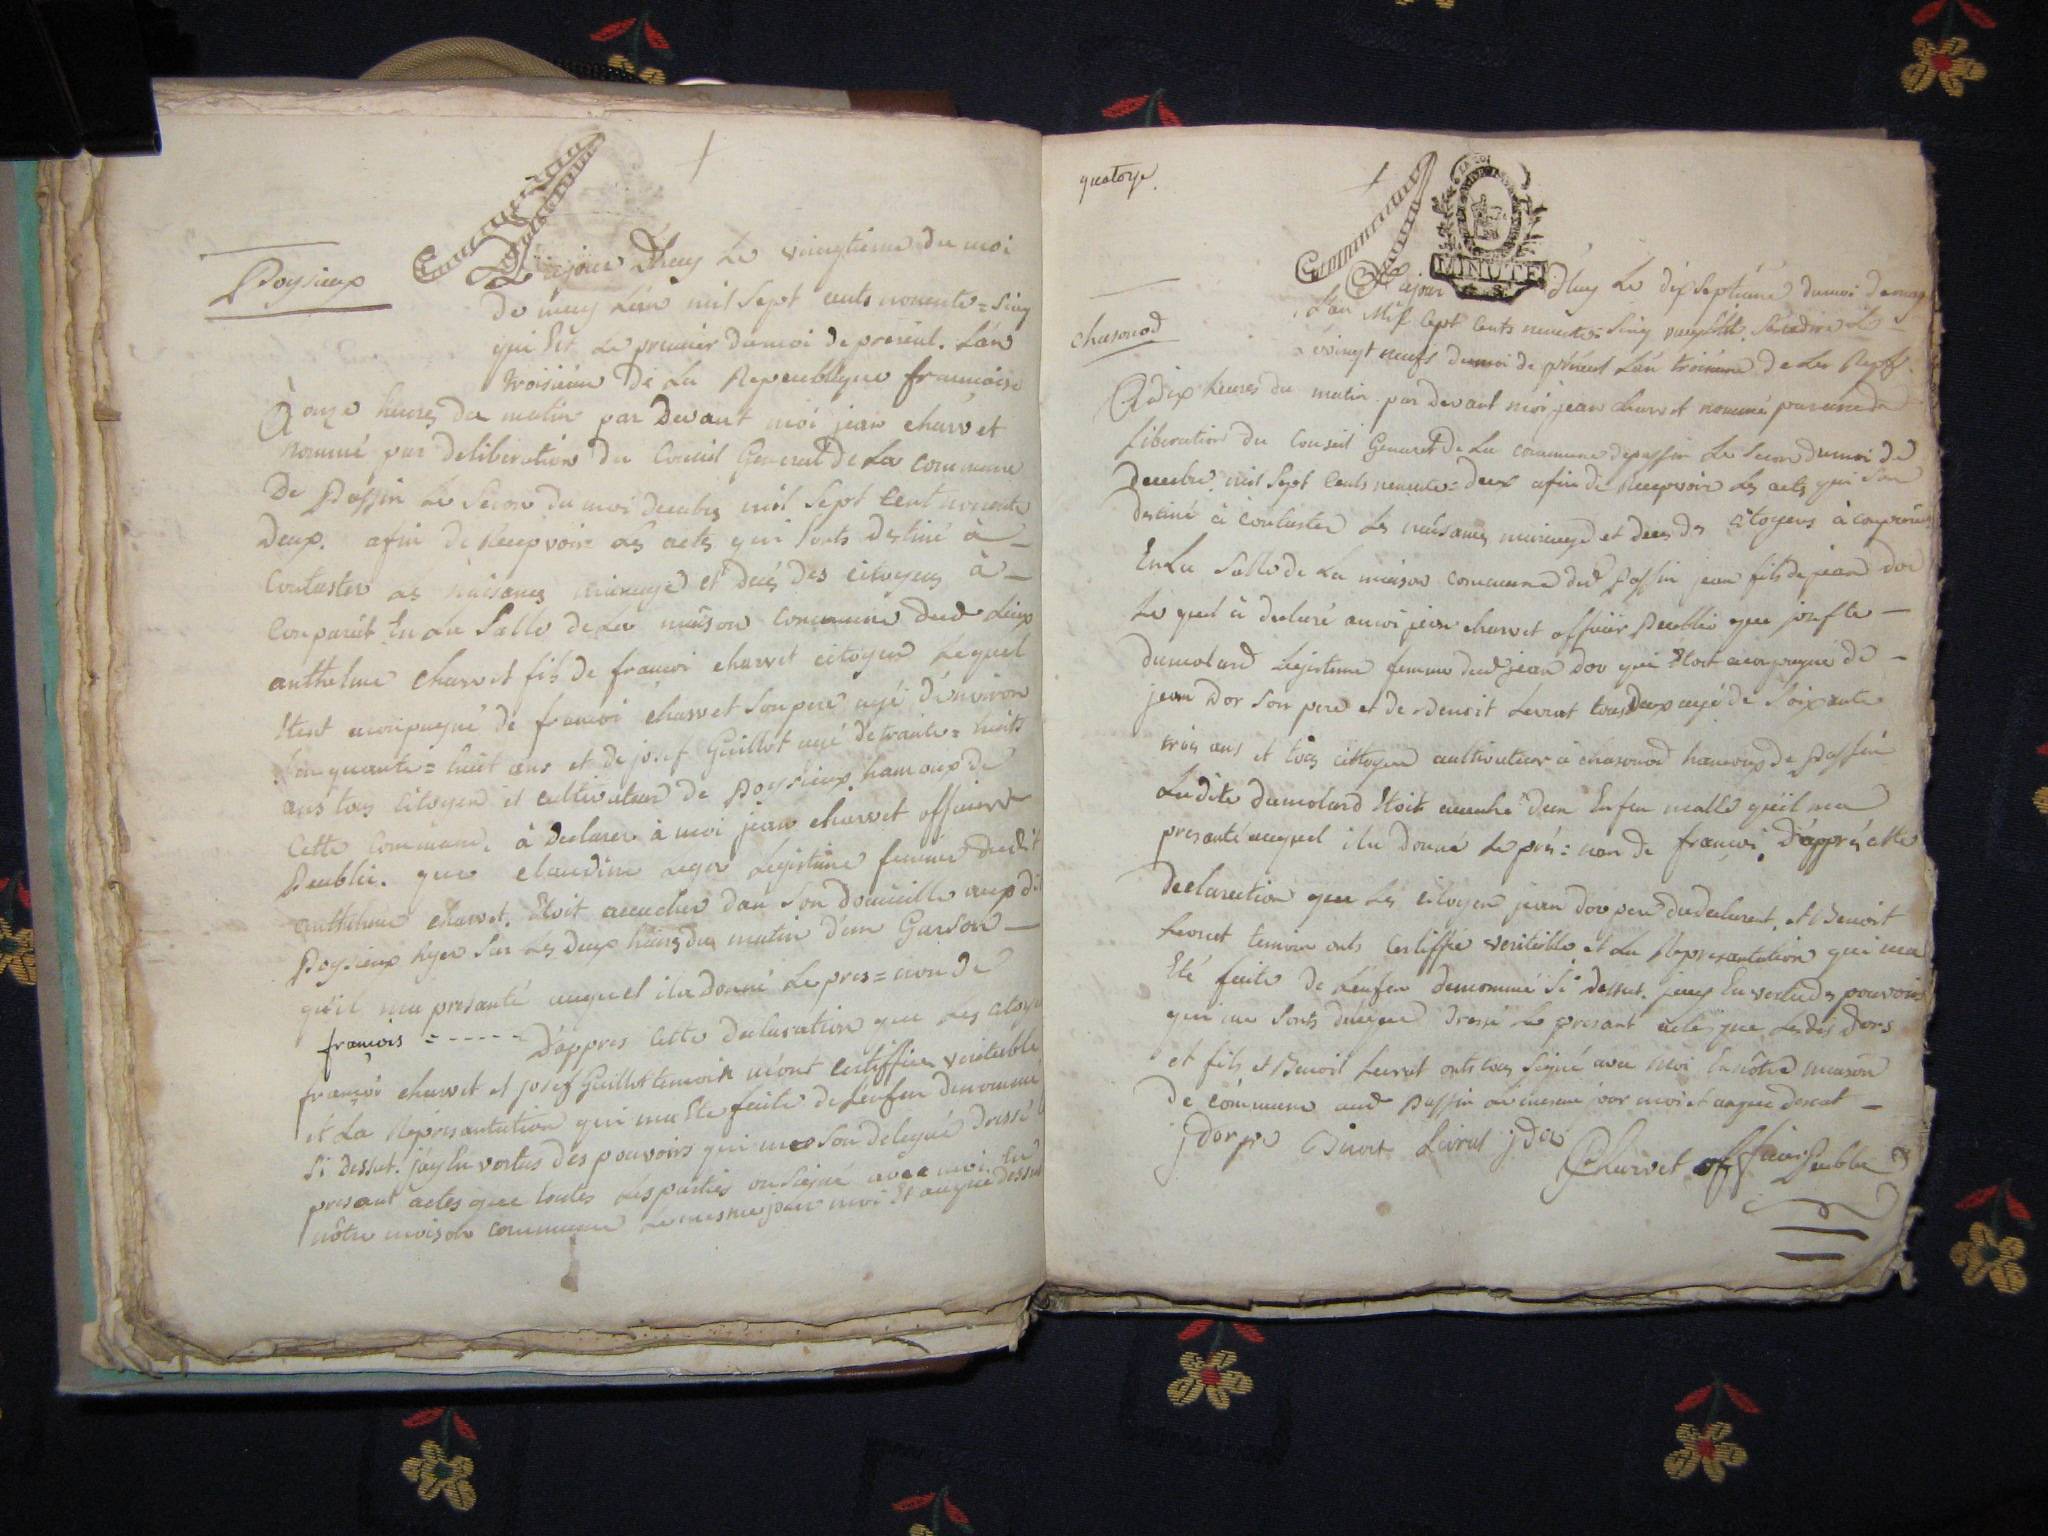 Poysieux
Cejour Dhuy Le vingtieme du moi
de may L'an mil Sept cents nonente=Sinq
qui Est Le premier dumoi de prereial. L'an
troisieme De La Republique francaise
À onze heures du matin par Devant moi jean charvet
nommé par deliberation du Conseil General De La commune
De Passin Le Secon du moi decembre mil Sept Cent nonente
Deux. afin de Recepvoir les acts qui Sonts Destiné à
Contaster les naisances mariage et decés Des citoyens à
Comparut En La Salle de La maison commune dud Lieux
anthelme charvet fils de francoi charvet citoyen Lequel
Etent acompagné de francoi charvet Son pere agé d'environ
Sinquante=huit ans et de josef Guillot agé de trante=huits
ans tous citoyen et cultivateur de Poysieux hamoux de
Cette Commune, à Declarer à moi jean charvet officier
Peublic. que claudine Leger Legistime femme dudit
anthelme charvet. Etoit acuchee dan Son Domicille aux dit
Poysieux hyer Sur Les deux heures du matin d'un Garson
qu'il ma presanté auquel il a donné Le pres=nom de
françois ------ D'appres Cette declaration que Les citoye
françoi charvet et josef Guillot temoin m'ont certiffier veritable
et La Représantation qui ma Ete faite de Lenfan denommé
Si dessut. j'ay En vertus des pouvoirs qui me Son delegué Dressé
presant actes que toutes Les parties on Signé avec moi En
nôtre maison commune Le mesme jour moi Et an que dessut
quatorze.
MINUTE
chasonod
Cejour D'huy Le dix Septieme dumoi de may
L'an Mil Sept Cents nonente=Sinq
vingt neufs dumoi de L'an troisieme de La Rep.
A dix heures du matin par devant moi jean charvet nommé par une de
Liberation du Conseil General De La commune depassin Le Secon dumoi de
Decembre mil Sept Cents nonente=deux afin de Recepvoir Les acts qui Son
Destiné à Contaster Les naisances mariage et deces des citoyens à comparu
En La Salle de La maison commune dud Passin jean fils de jean dor
Le quel à declaré a moi jean charvet officier Peublic que josefte
dumolard Legistime femme dud jean dor qui Etoit acompagné de
jean Dor Son pere et de Benoit Levrat tous Deux agé de Soixante
trois ans et tous cittoyen cultivateur à chasonod hamoux de Passin
Ladite dumolard Etoit acuchée d'un Enfan malle qu'il ma
presanté auquel il a Donné Le prés=nom de francoi. D'apprés cette
Declaration que Les citoyen jean dor pere du declarent, et Benoit
Levrat temoin onts Certiffié veritable et La Represantation qui ma
Eté faite de L'enfan denommé Si dessut. jay En vertu des pouvoir
qui me Sonts délégué Dressé Le presant acte que Lesdis Dors
et fils et Benoit Levrat onts tous Signé avec moi En nôtre maison
De commune aud Passin Le mesme jour moi et anque desut
jdor pre Binoit Lavrat jdor
Charvet officier Peublic